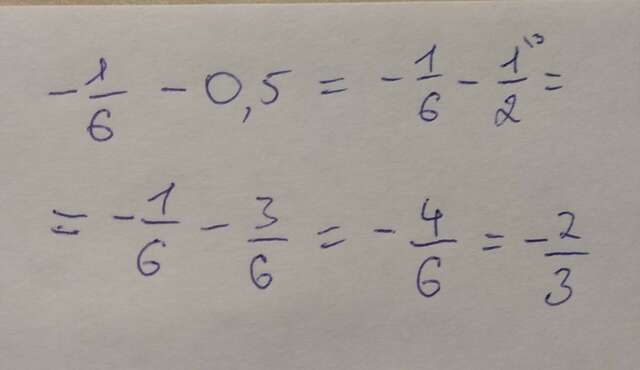 -1/6 - 0,5 = -1/6 - 1\3/2 =
= -1/6 - 3/6 = -4/6 = -2/3